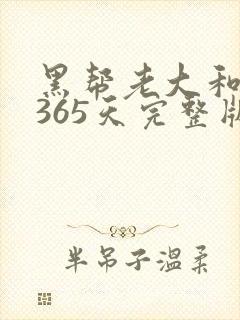 黑帮老大和
365天完整版
半吊子温柔